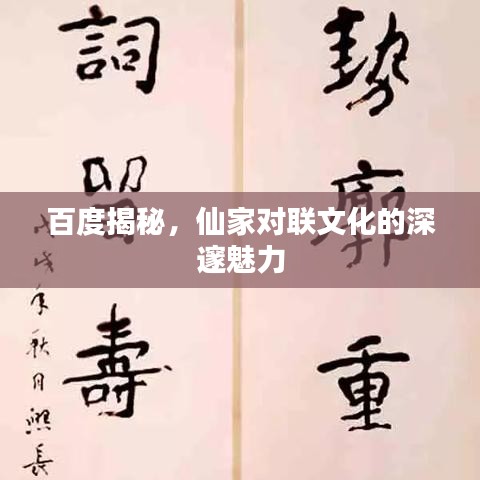 百度揭秘，仙家对联文化的深
邃魅力
勢廓重
詞留壽
戊戌年秋月熙長